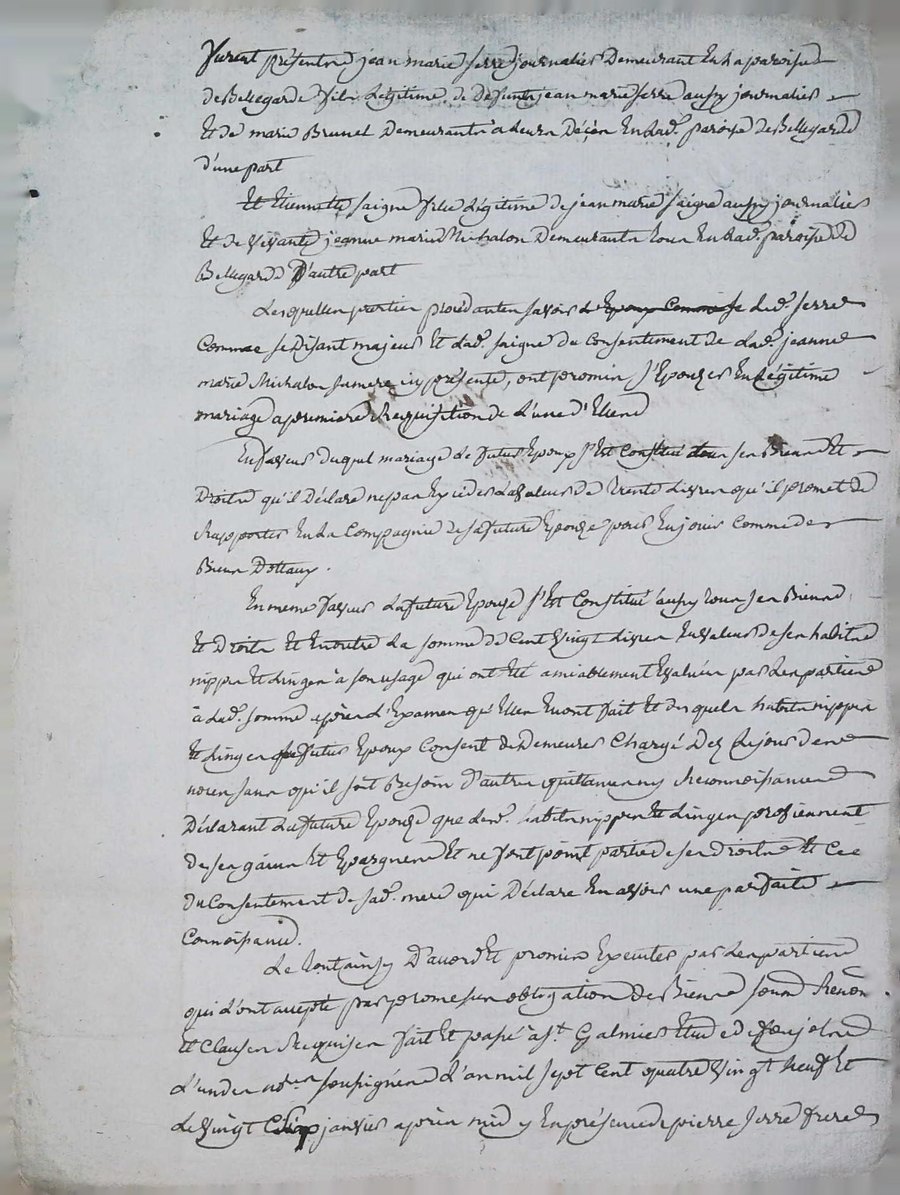 furent présents jean marie serre journalier demeurant en la paroisse
de Bellegarde fils Légitime de deffunt jean marie serre aussy journalier
Et de marie Brunel demeurants a leurs décès En lad. paroisse de Bellegarde
d'une part
Et Etiennette saigne fille Légitime de jean marie saigne aussy journalier
Et de vivante jeanne marie Michalon demeurants tous En lad. paroisse de
Bellegarde D'autre part
Lesquelles parties procédantes savoir Led. serre
Comme se disant majeur Et lad. saigne du consentement de lad. jeanne
marie Michalon sa mere icy présente, ont promis s'Epouser En Légitime
mariage a premiere Réquisition de L'une d'Elles
En faveur duquel mariage Le futur Epoux s'Est Constitué tous ses Biens Et
Droits qu'il Déclare ne pas Excéder La valeur de trente Livres qu'il promet de
Rapporter En La Compagnie de sa future Epouse pour En jouir Comme de
Biens Dotaux.
En meme faveur La future Epouse s'Est Constitué aussy tous ses Biens
Et Droits Et En outre La somme de Cent vingt Livres En valeur de ses habits
nippes Et Linges à son usage qui ont Eté amiablement Evalués par Les parties
à lad. somme après L'Examen qu'Elles En ont fait Et desquels habits nippes
Et Linges Le futur Epoux Consent de Demeurer Chargé Dez Le jour des
noces sans qu'il soit Besoin D'autres quittances ny Reconnoissances
Déclarant La future Epouse que lesd. habits nippes Et Linges proviennent
de ses gains Et Epargnes Et ne font point partie de ses Droits Et Ce
du Consentement de sad. mere qui Déclare En avoir une parfaite
Connoissance.
Le tout ainsy D'accord Et promis Exécuter par Les parties
qui L'ont accepté par promesses obligation De Biens
Et Clauses Requises fait Et passé à St. Galmier Etude de
L'un des soussignés L'an mil sept Cent quatre vingt neuf Et
Le vingt janvier après midy En présence de pierre serre frere